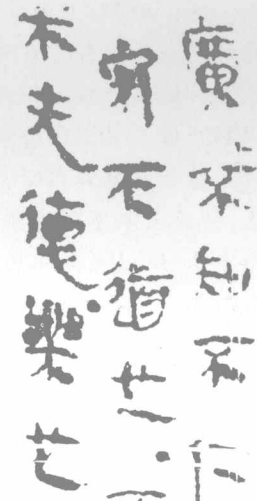 廣不知不仁
窮不道也
木夫德樂也